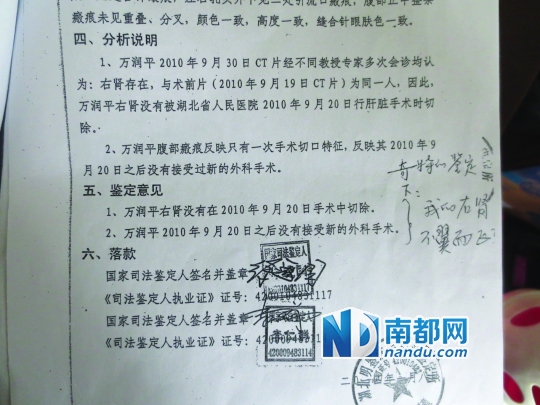 瘢痕未见重叠、分叉，颜色一致，高度一致，缝合针眼肤色一致。
四、分析说明
1、万润平 2010 年 9 月 30 日 CT 片经不同教授专家多次会诊均认
为：右肾存在，与术前片（2010 年 9 月 19 日 CT 片）为同一人，因此，
万润平右肾没有被湖北省人民医院 2010 年 9 月 20 日行肝脏手术时切
除。
2、万润平腹部瘢痕反映只有一次手术切口特征，反映其 2010 年 9
月 20 日之后没有接受过新的外科手术。
五、鉴定意见
1、万润平右肾没有在 2010 年 9 月 20 日手术中切除。
2、万润平 2010 年 9 月 20 日之后没有接受新的外科手术。
六、落款
国家司法鉴定人签名并盖章
《司法鉴定人执业证》证号：4200104831117
国家司法鉴定人签名并盖章
《司法鉴定人执业证》证号：420009483114
奇特的鉴定
我的右肾
不翼而飞
国家司法鉴定人
420009483114
ND 南都网
nandu.com